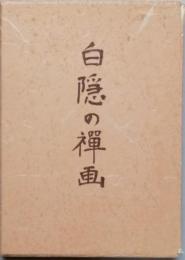 白隠の禅画